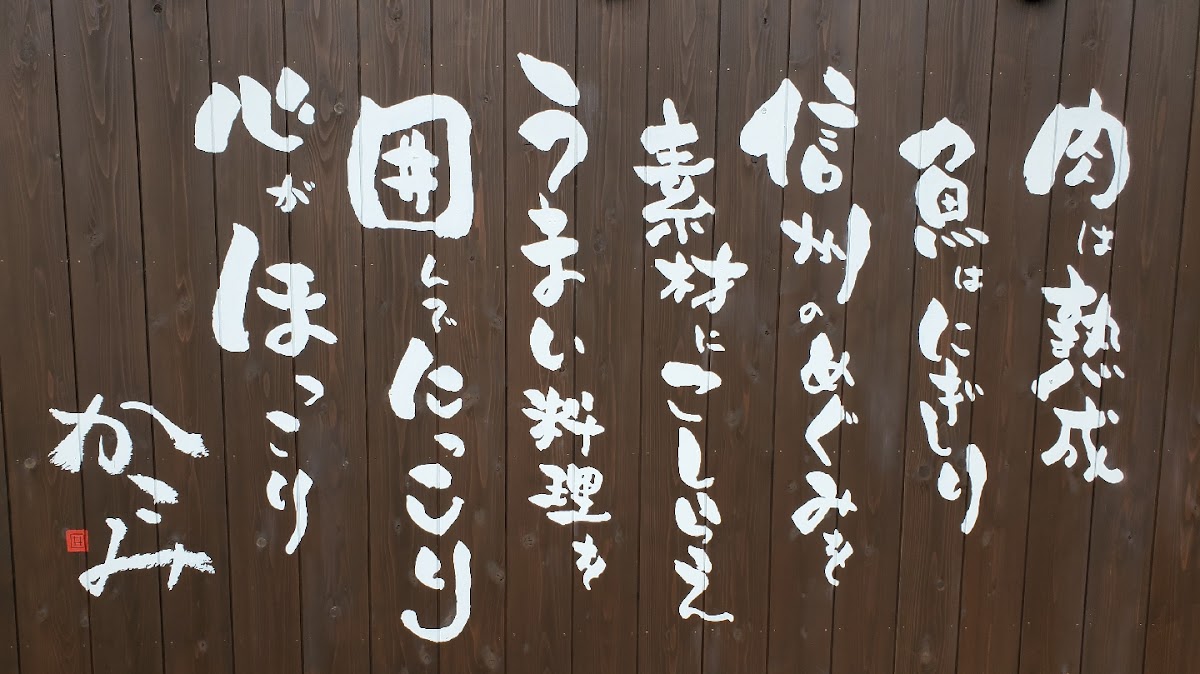 肉は熟成
魚はにぎり
信州のめぐみを
素材にこしらえ
うまい料理を
囲んでにっこり
心がほっこり
かこみ